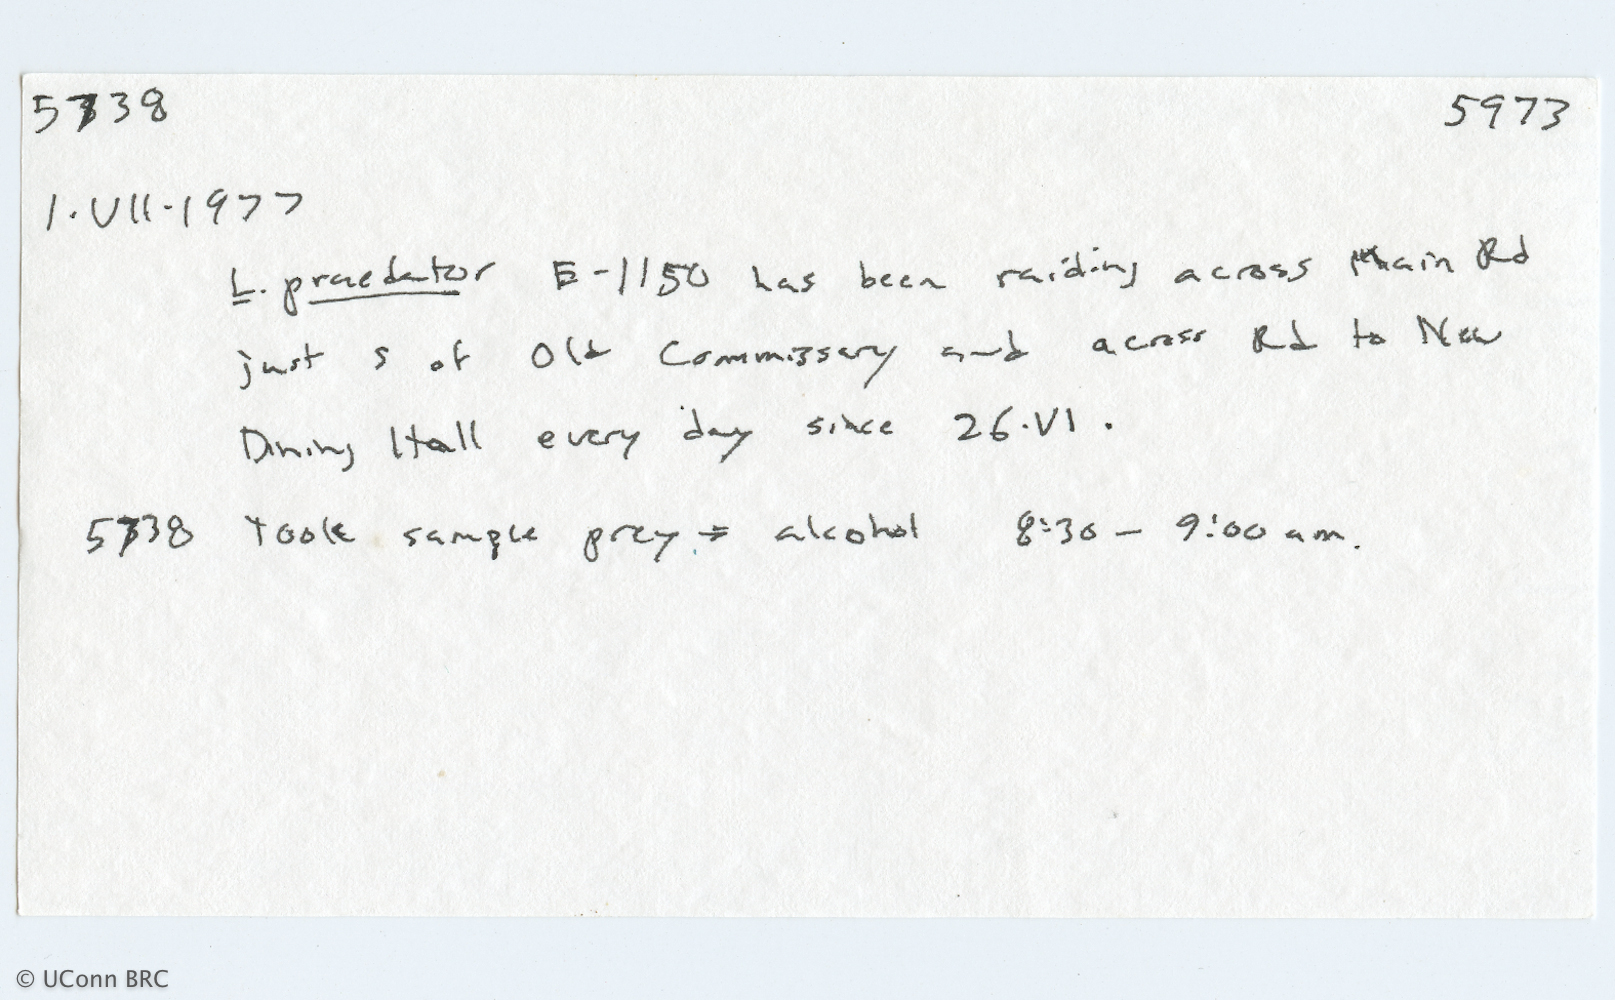 5738 5973
1.VII.1977
L. praedator E-1150 has been raiding across Main Rd
just S of Old Commissary and across Rd to New
Dining Hall every day since 26.VI.
5738 Took sample prey → alcohol 8:30 - 9:00 am.
© UConn BRC